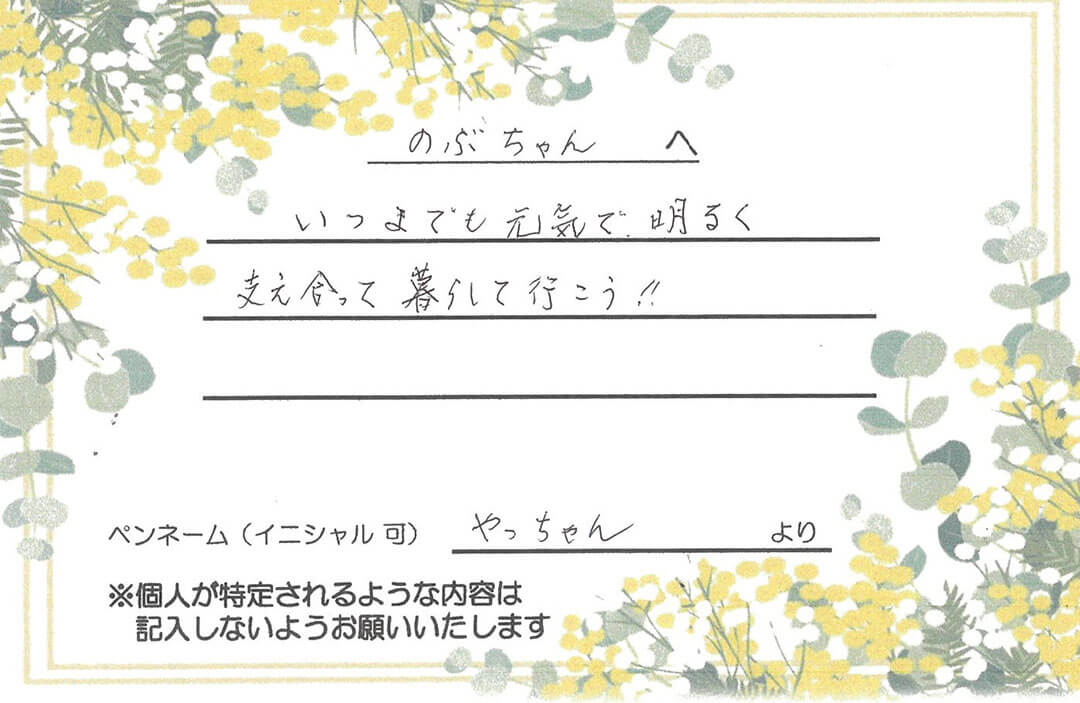 のぶちゃん へ
いつまでも元気で明るく
支え合って暮らして行こう!!
ペンネーム(イニシャル 可) やっちゃん より
※個人が特定されるような内容は
記入しないようお願いいたします